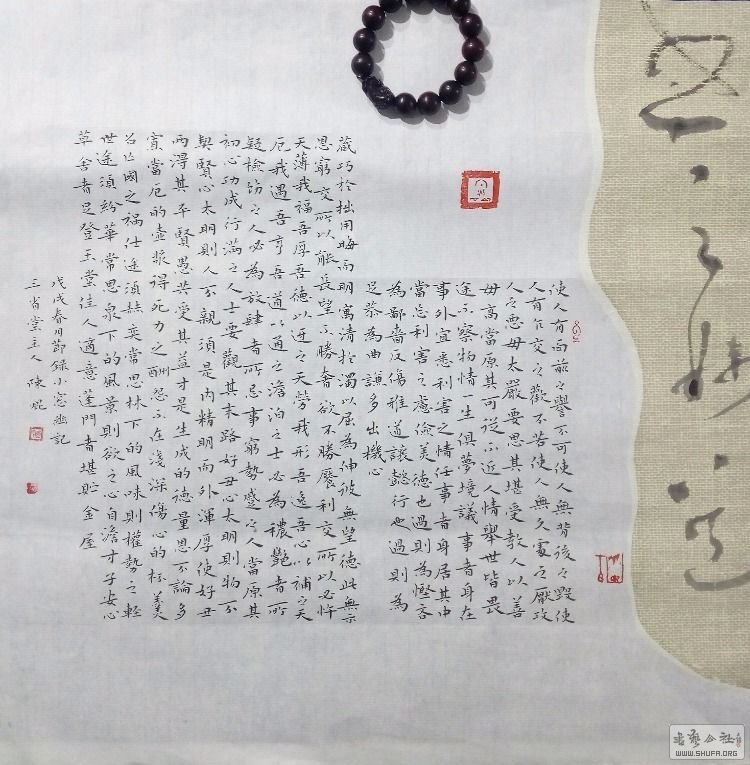 使人有面前之譽不可使人無背後之毀使
人有乍交之歡不若使人無久處之厭攻
人之惡毋太嚴要思其堪受教人以善
毋高當原其可從不近人情舉世皆畏
途不察物情一生俱夢境議事者身在
事外宜悉利害之情任事者身居其中
當忘利害之慮儉美德也過則為慳吝
為鄙嗇反傷雅道讓懿行也過則為
足恭為曲謙多出機心
藏巧於拙用晦而明寓清於濁以屈為伸彼無望德此無示
恩窮交所以能長望不勝奢欲不勝饜利交所以必忤
天薄我福吾厚吾德以迓之天勞我形吾逸吾心以補之天
厄我遇吾亨吾道以通之澹泊之士必為穠艷者所
疑檢飭之人必為放肆者所忌事窮勢蹙之人當原其
初心功成行滿之人士要觀其末路好丑心太明則物不
契賢心太明則人不親須是內精明而外渾厚使好丑
兩得其平賢愚共受其益才是生成的德量恩不論多
寡當厄的壺漿得死力之酬怨不在淺深傷心的杯羹
召亡國之禍仕途須赫奕常思林下的風味則權勢之輕
世途須紛華常思泉下的風景則欲之心自澹才子安心
草舍者足登玉堂佳人適意蓬門者堪貯金屋
戊戌春月節錄小窗幽記
三省堂主人陳焜
書藝公社
WWW.SHUFA.ORG